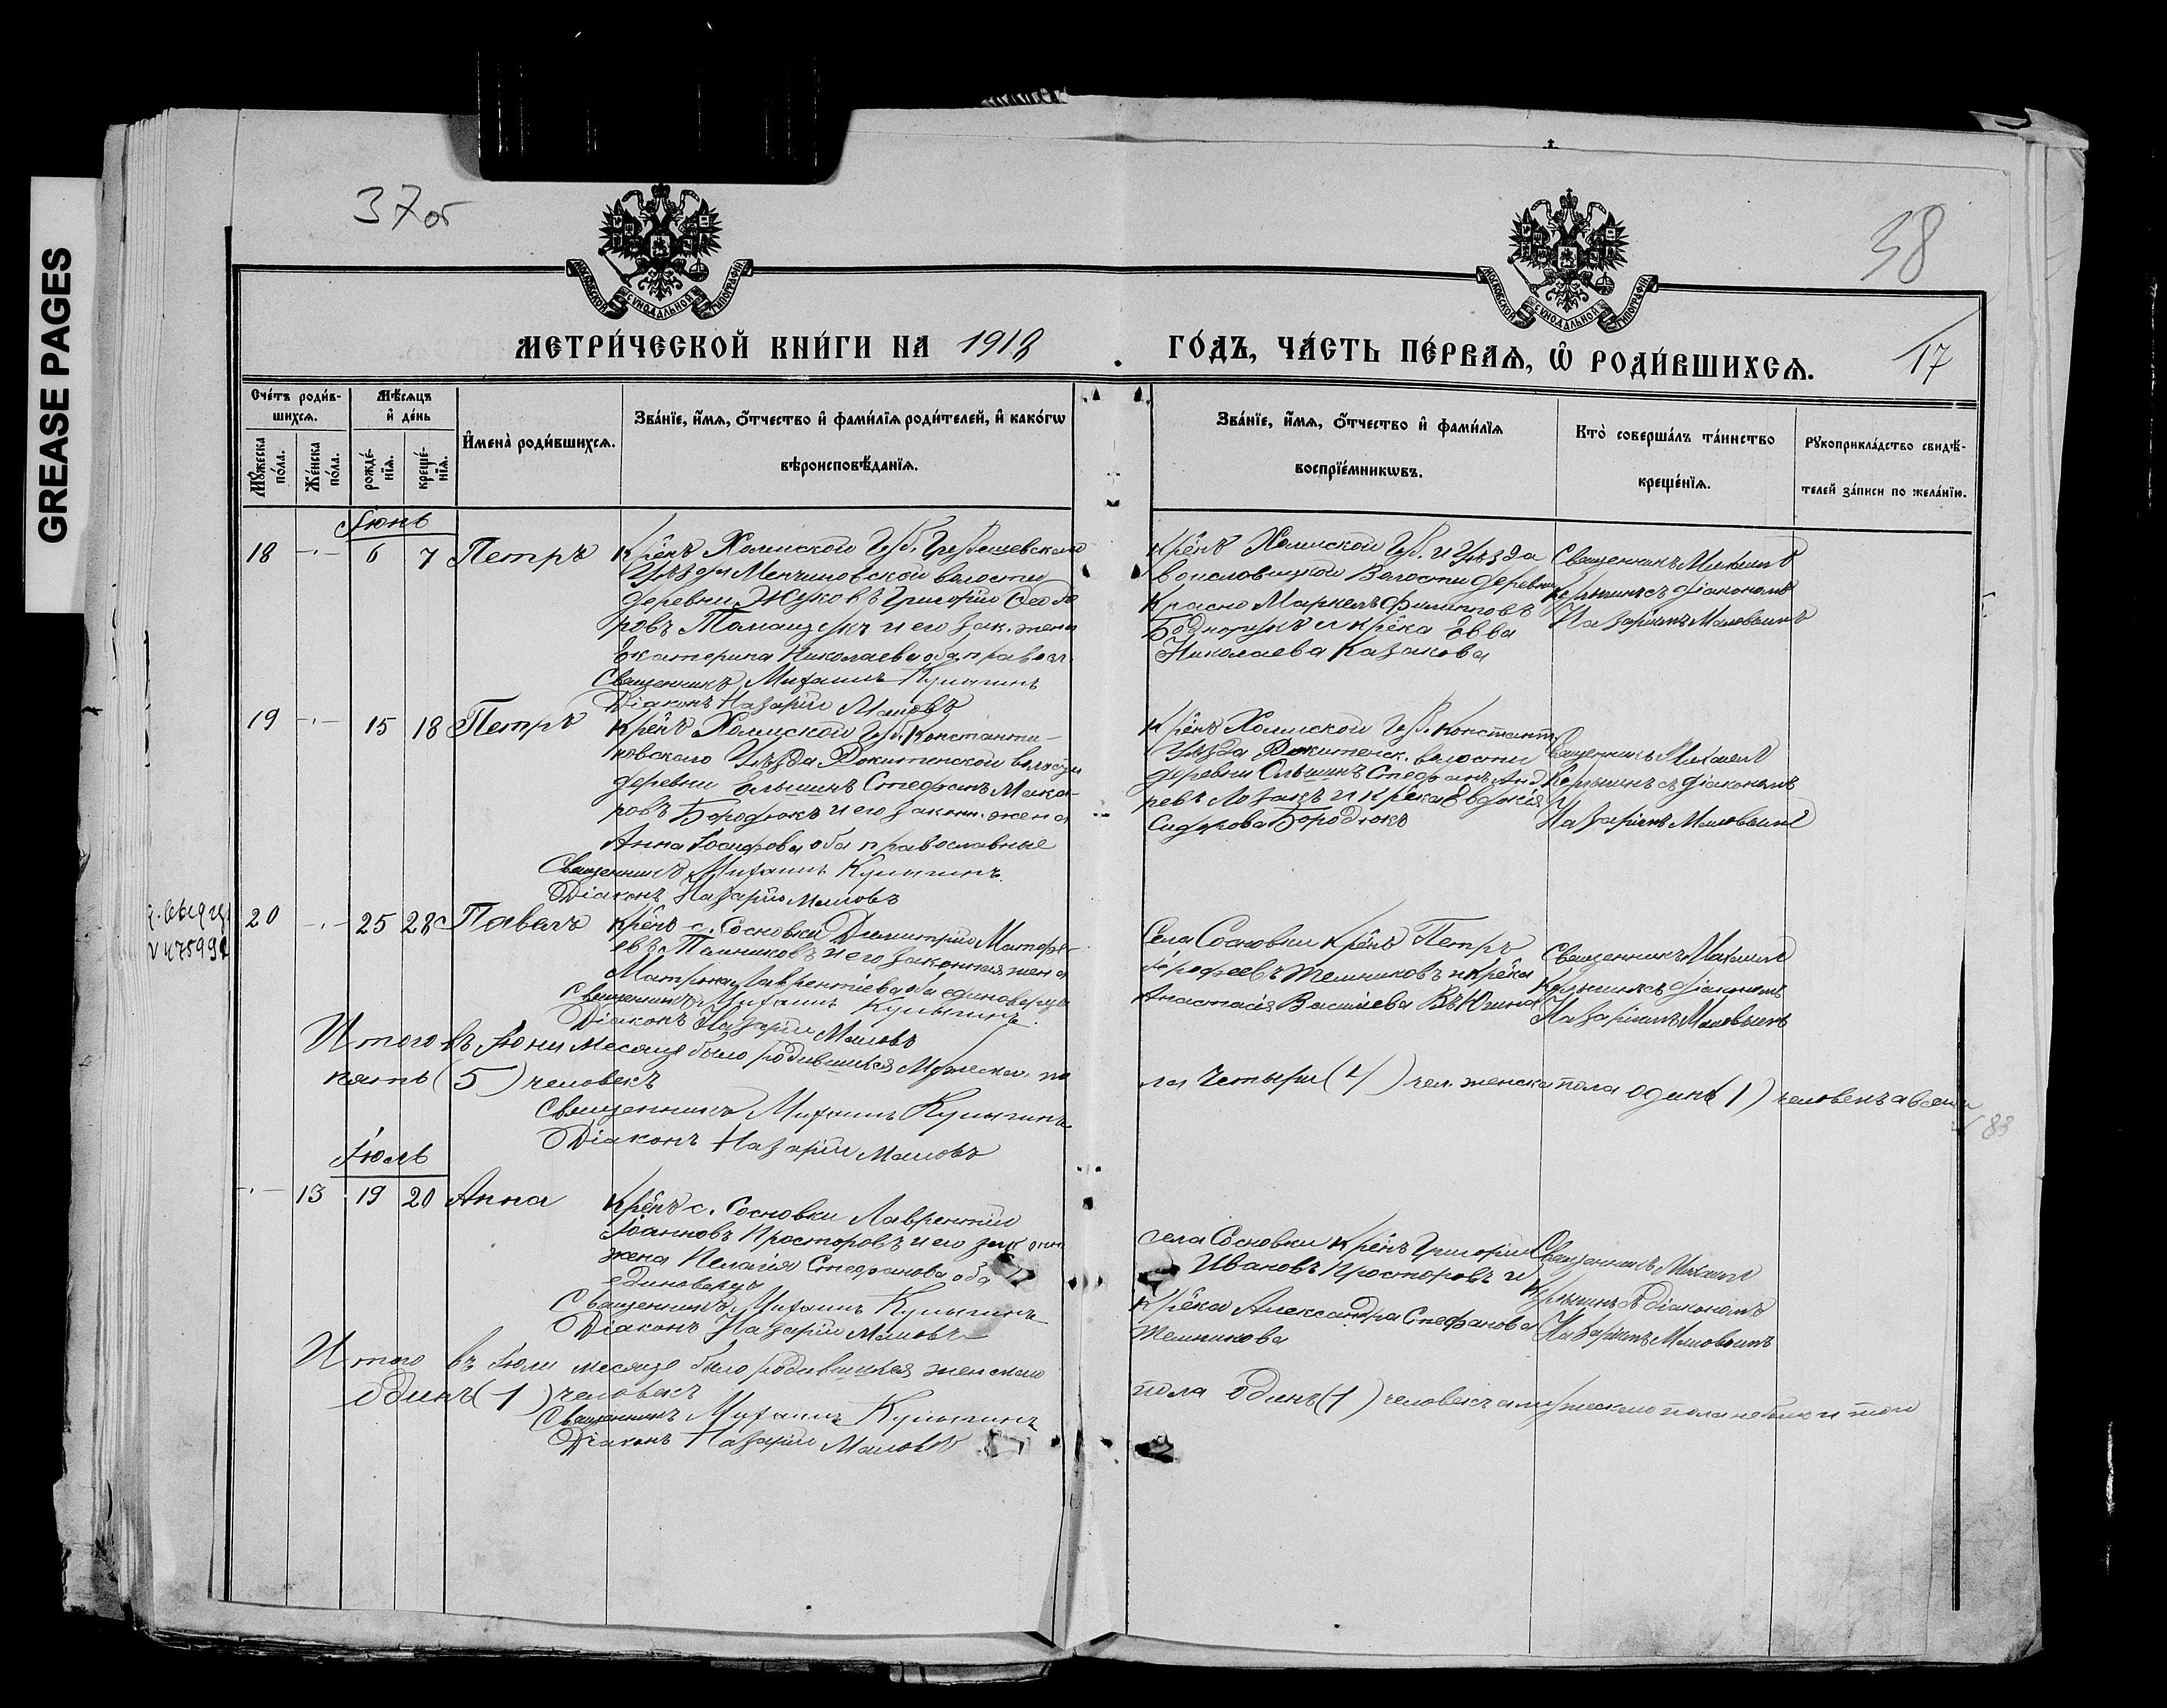 GREASE PAGES
37об
38
МОСКОВСКОЙ СѴНОДАЛЬНОЙ ТИПОГРАФІИ
МОСКОВСКОЙ СѴНОДАЛЬНОЙ ТИПОГРАФІИ
МЕТРИ́ЧЕСКОЙ КНИ́ГИ НА 1918
ГО́ДЪ, ЧА́СТЬ ПЕ́РВАѦ, Ѽ РОДИ́ВШИХСѦ.
17
Сче́тъ роди́в-
шихсѧ.
Мꙋ́жеска по́ла.
Же́нска по́ла.
Мѣ́сѧцъ
и҆ де́нь
рожде́-
нїѧ.
креще́-
нїѧ.
И҆мена̀ роди́вшихсѧ.
Зва́нїе, и҆́мѧ, ѻ҆́тчество и҆ фами́лїѧ роди́телей, и҆ како́гѡ
вѣроисповѣ́данїѧ.
Зва́нїе, и҆́мѧ, ѻ҆́тчество и҆ фами́лїѧ
воспрїе́мникѡвъ.
Кто̀ соверша́лъ та́инство
креще́нїѧ.
Рꙋкоприкла́дство свидѣ́-
телей за́писи по жела́нїю.
Іюнь
18 -·- 6 7 Петръ
Крѣнъ Холмской Губ. Грубешевскаго
Уѣзда Менчиновской волости
деревни Жуковъ Григорій Ѳеодо
ровъ Томащукъ и его зак. жена
Екатерина Николаева оба правосл.
Священникъ Михаилъ
Діаконъ Назарій Маловъ
Крѣнъ Холмской Губ. и Уѣзда
Войславицкой Волости деревни
Красно Маркелъ Филипповъ
Боднарукъ и крѣка Евва
Николаева Казакова
Священникъ Михаилъ
съ діакономъ
Назаріемъ Маловымъ
19 -·- 15 18 Петръ
Крѣнъ Холмской Губ. Константи-
новскаго Уѣзда Рокитенской волости
деревни Ольшинъ Стефанъ Мака-
ровъ Бородюкъ и его законн. жена
Анна Іосифова оба православные
Священникъ Михаилъ
Діаконъ Назарій Маловъ
Крѣнъ Холмской Губ. Констант.
Уѣзда Рокитенск. волости
деревни Ольшинъ Стефанъ Анд
ревъ Лозакъ и крѣка Евдокія
Сидорова Бородюкъ
Священникъ Михаилъ
съ діакономъ
Назаріемъ Маловымъ
20 -·- 25 28 Павелъ
Крѣнъ с. Сосновки Димитрій
евъ Темниковъ и его законная жена
Матрона Лаврентіева оба единоверцы
Священникъ Михаилъ
Діаконъ Назарій Маловъ
Села Сосновки крѣнъ Петръ
Дорофеевъ Темниковъ и крѣка
Анастасія Василіева
Священникъ Михаилъ
съ діакономъ
Назаріемъ Маловымъ
Итого въ Іюни месяце было родившихся Мужеска по
ла Четыри (4) чел. женска пола одинъ (1) человекъ а всего
пять (5) человекъ
Священникъ Михаилъ
Діаконъ Назарій Маловъ
Іюль
-·- 13 19 20 Анна
Крѣнъ с. Сосновки Лаврентій
Іоанновъ Просторовъ и его законн
жена Пелагія Стефанова оба
единоверцы
Священникъ Михаилъ
Діаконъ Назарій Маловъ
села Сосновки крѣнъ Григорій
Ивановъ Просторовъ и
Крѣка Александра Стефанова
Темникова
Священникъ Михаилъ
съ діакономъ
Назаріемъ Маловымъ
Итого въ Іюли месяце было родившихся женскаго
пола одинъ (1) человекъ а мужескаго пола не было и того
одинъ (1) человекъ
Священникъ Михаилъ
Діаконъ Назарій Маловъ